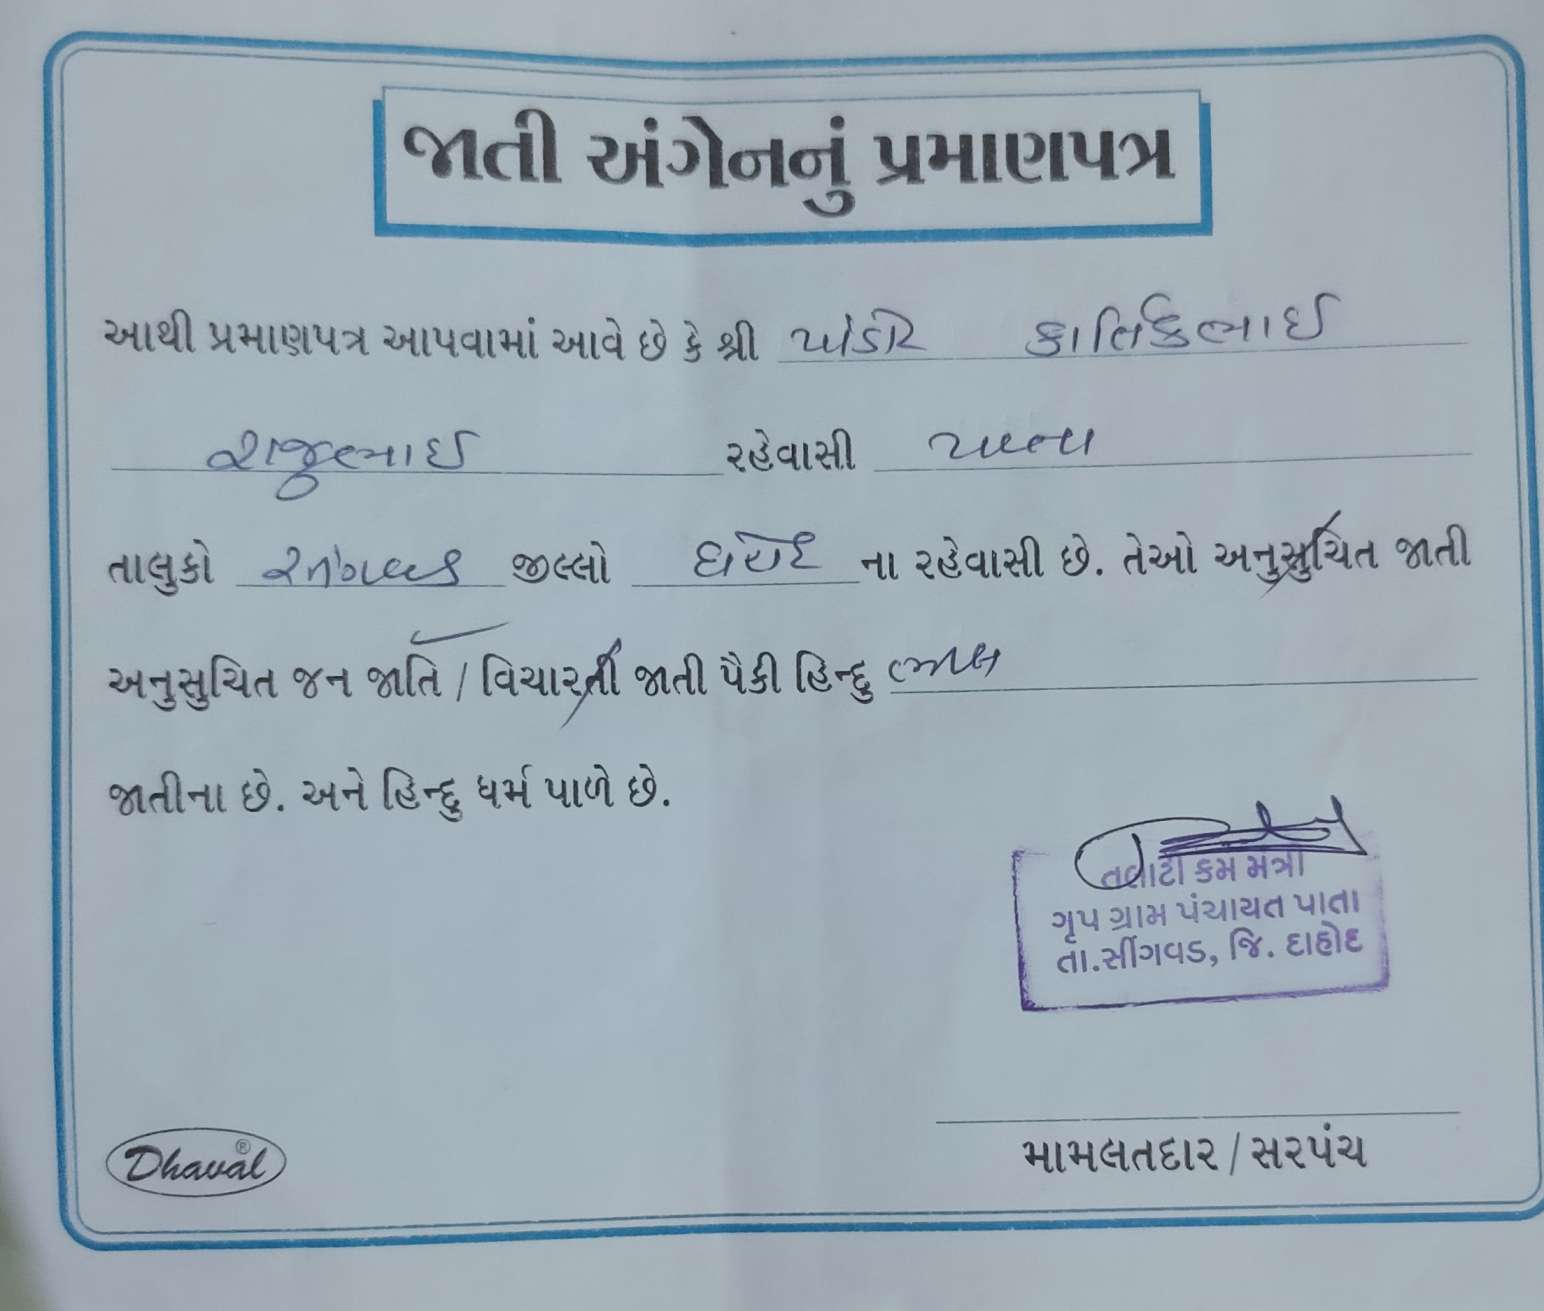 જાતી અંગેનનું પ્રમાણપત્ર
આથી પ્રમાણપત્ર આપવામાં આવે છે કે શ્રી કાર્તિકભાઈ
રાજુભાઈ રહેવાસી પાતા
તાલુકો સીંગવડ જીલ્લો દાહોદ ના રહેવાસી છે. તેઓ અનુસુચિત જાતી
અનુસુચિત જન જાતિ / વિચારતી જાતી પૈકી હિન્દુ ભીલ
જાતીના છે. અને હિન્દુ ધર્મ પાળે છે.
તલાટી કમ મંત્રી
ગૃપ ગ્રામ પંચાયત પાતા
તા.સીંગવડ, જિ. દાહોદ
મામલતદાર / સરપંચ
Dhaval®